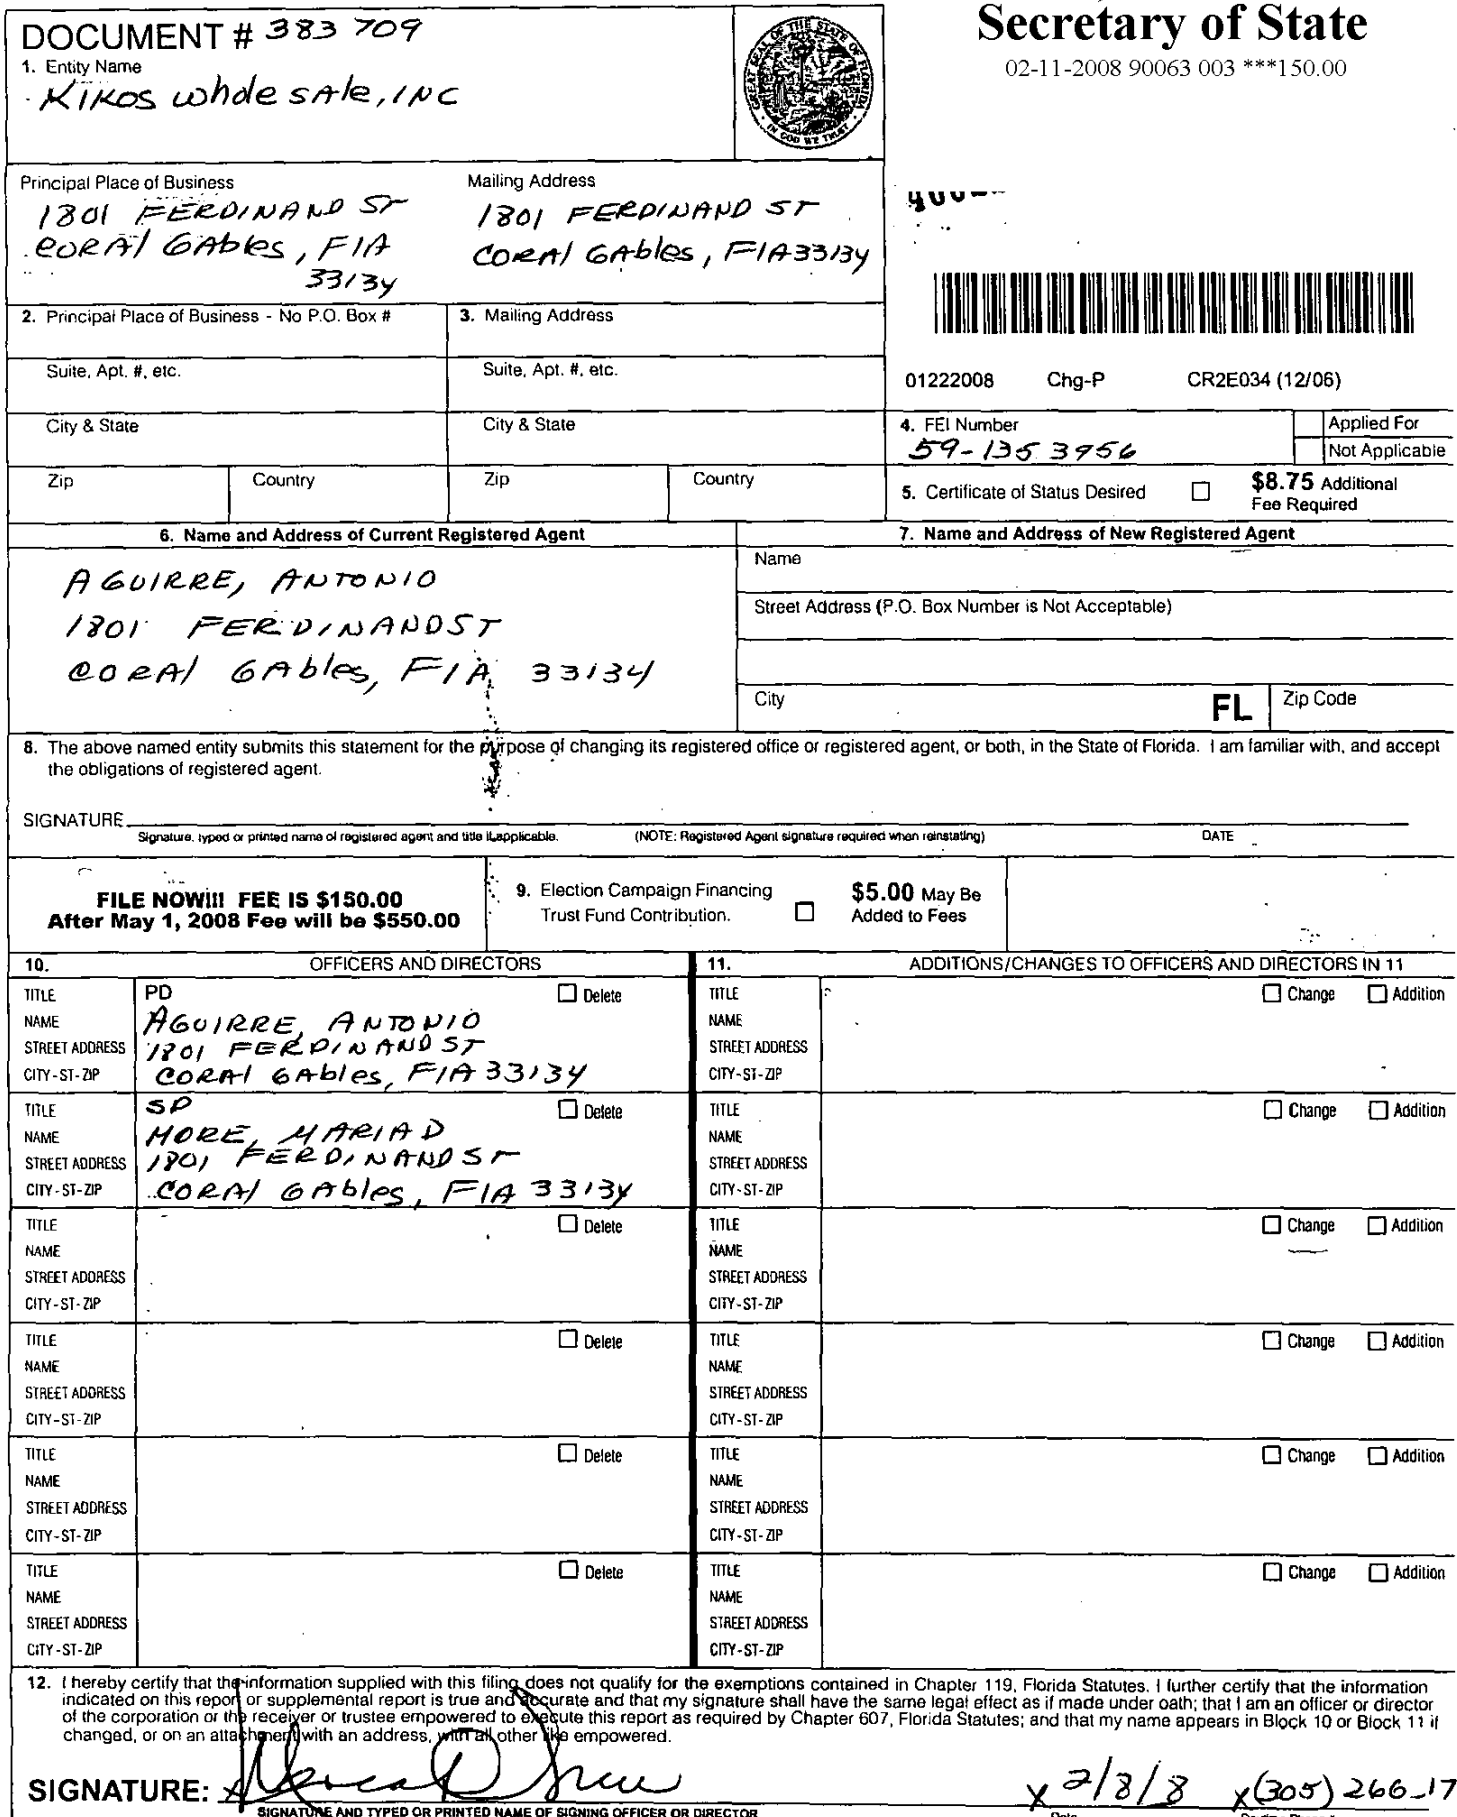 DOCUMENT # 383 709
Secretary of State
02-11-2008 90063 003 ***150.00
1. Entity Name
KIKOS Whole sAle, INC
GREAT SEAL OF THE STATE OF FLORIDA
IN GOD WE TRUST
Principal Place of Business
1801 FERDINAND ST
CORAl GAbles, FlA
33134
Mailing Address
1801 FERDINAND ST
CORAl GAbles, FlA 33134
2. Principal Place of Business - No P.O. Box #
3. Mailing Address
Suite, Apt. #, etc.
Suite, Apt. #, etc.
01222008 Chg-P CR2E034 (12/06)
City & State
City & State
4. FEI Number
59-135 3956
Applied For
Not Applicable
Zip Country
Zip Country
5. Certificate of Status Desired
$8.75 Additional
Fee Required
6. Name and Address of Current Registered Agent
AGUIRRE, ANTONIO
1801 FERDINAND ST
CORAl GAbles, FlA 33134
7. Name and Address of New Registered Agent
Name
Street Address (P.O. Box Number is Not Acceptable)
City FL Zip Code
8. The above named entity submits this statement for the purpose of changing its registered office or registered agent, or both, in the State of Florida. I am familiar with, and accept
the obligations of registered agent.
SIGNATURE
Signature, typed or printed name of registered agent and title if applicable. (NOTE: Registered Agent signature required when reinstating) DATE
FILE NOW!!! FEE IS $150.00
After May 1, 2008 Fee will be $550.00
9. Election Campaign Financing
Trust Fund Contribution.
$5.00 May Be
Added to Fees
10. OFFICERS AND DIRECTORS
TITLE PD Delete
NAME AGUIRRE, ANTONIO
STREET ADDRESS 1801 FERDINAND ST
CITY-ST-ZIP CORAl GAbles, FlA 33134
TITLE SD Delete
NAME MORE, MARIA D
STREET ADDRESS 1801 FERDINAND ST
CITY-ST-ZIP CORAl GAbles, FlA 33134
TITLE Delete
NAME
STREET ADDRESS
CITY-ST-ZIP
TITLE Delete
NAME
STREET ADDRESS
CITY-ST-ZIP
TITLE Delete
NAME
STREET ADDRESS
CITY-ST-ZIP
TITLE Delete
NAME
STREET ADDRESS
CITY-ST-ZIP
11. ADDITIONS/CHANGES TO OFFICERS AND DIRECTORS IN 11
TITLE Change Addition
NAME
STREET ADDRESS
CITY-ST-ZIP
TITLE Change Addition
NAME
STREET ADDRESS
CITY-ST-ZIP
TITLE Change Addition
NAME
STREET ADDRESS
CITY-ST-ZIP
TITLE Change Addition
NAME
STREET ADDRESS
CITY-ST-ZIP
TITLE Change Addition
NAME
STREET ADDRESS
CITY-ST-ZIP
TITLE Change Addition
NAME
STREET ADDRESS
CITY-ST-ZIP
12. I hereby certify that the information supplied with this filing does not qualify for the exemptions contained in Chapter 119, Florida Statutes. I further certify that the information
indicated on this report or supplemental report is true and accurate and that my signature shall have the same legal effect as if made under oath; that I am an officer or director
of the corporation or the receiver or trustee empowered to execute this report as required by Chapter 607, Florida Statutes; and that my name appears in Block 10 or Block 11 if
changed, or on an attachment with an address, with all other like empowered.
SIGNATURE: x x 2/8/8 x (305) 266-17
SIGNATURE AND TYPED OR PRINTED NAME OF SIGNING OFFICER OR DIRECTOR